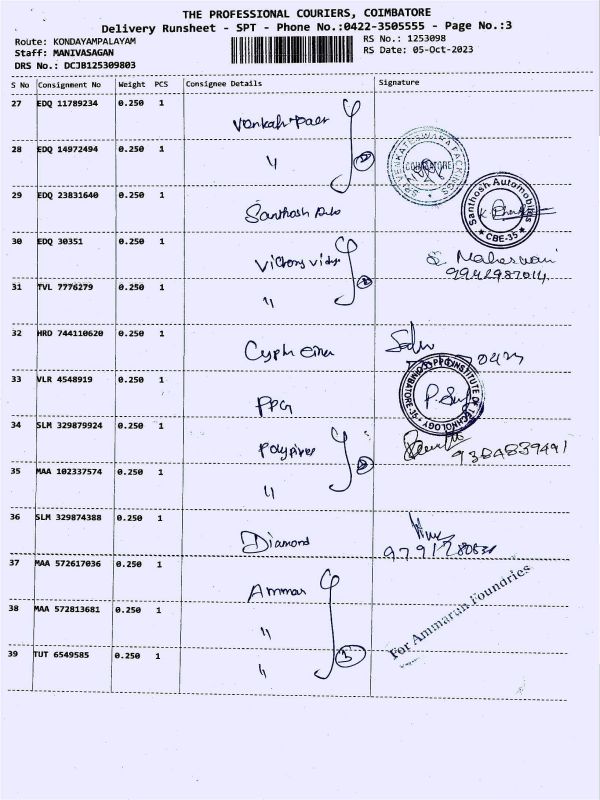 THE PROFESSIONAL COURIERS, COIMBATORE
Delivery Runsheet - SPT - Phone No.:0422-3505555 - Page No.:3
Route: KONDAYAMPALAYAM
RS No.: 1253098
Staff: MANIVASAGAN
RS Date: 05-Oct-2023
DRS No.: DCJB125309803
S No Consignment No Weight PCS Consignee Details Signature
27 EDQ 11789234 0.250 1
28 EDQ 14972494 0.250 1 "
SRI VENKATESWARA PACKINGS COIMBATORE
29 EDQ 23831640 0.250 1 Santhosh Auto
Santhosh Automobiles CBE-35
30 EDQ 30351 0.250 1 Victory Vidya
Maheswari
9942987014
31 TVL 7776279 0.250 1 "
32 HRD 744110620 0.250 1
33 VLR 4548919 0.250 1 PPG
PPG INSTITUTE OF TECHNOLOGY COIMBATORE-35
P.
34 SLM 329879924 0.250 1
9384839491
35 MAA 102337574 0.250 1 "
36 SLM 329874388 0.250 1 Diamond
37 MAA 572617036 0.250 1 Ammar
38 MAA 572813681 0.250 1 "
For Ammarun Foundries
39 TUT 6549585 0.250 1 " 3